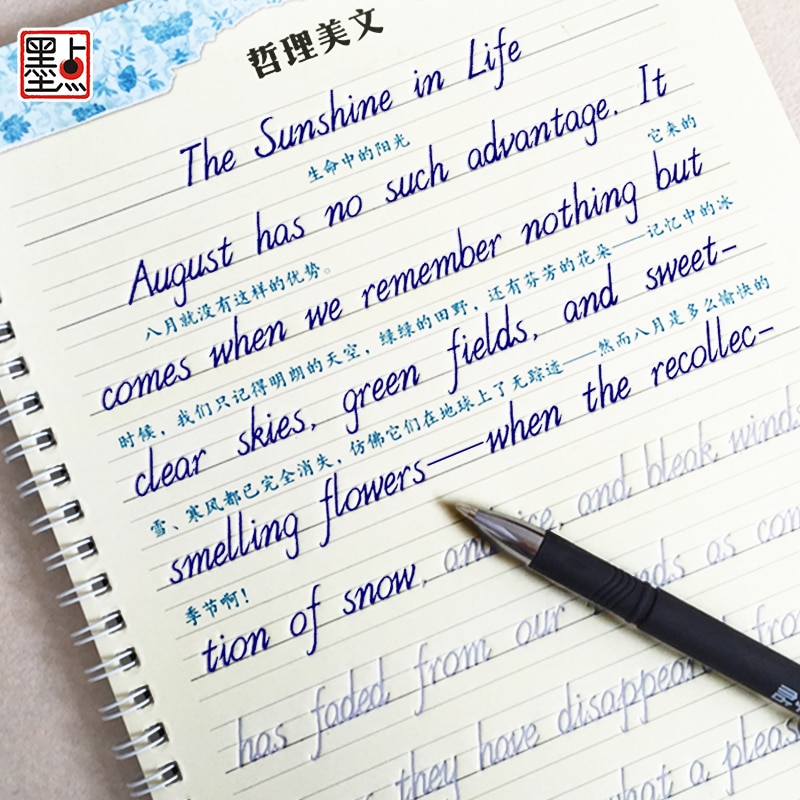 墨点
哲理美文
The Sunshine in Life
生命中的阳光
August has no such advantage. It
八月就没有这样的优势。 它来的
comes when we remember nothing but
时候，我们只记得明朗的天空，绿绿的田野，还有芬芳的花朵——记忆中的冰
clear skies, green fields, and sweet-
雪、寒风都已完全消失，仿佛它们在地球上了无踪迹——然而八月是多么愉快的
smelling flowers——when the recollec-
季节啊！
tion of snow, and ice, and bleak winds
has faded from our as
they have disappeared
what a